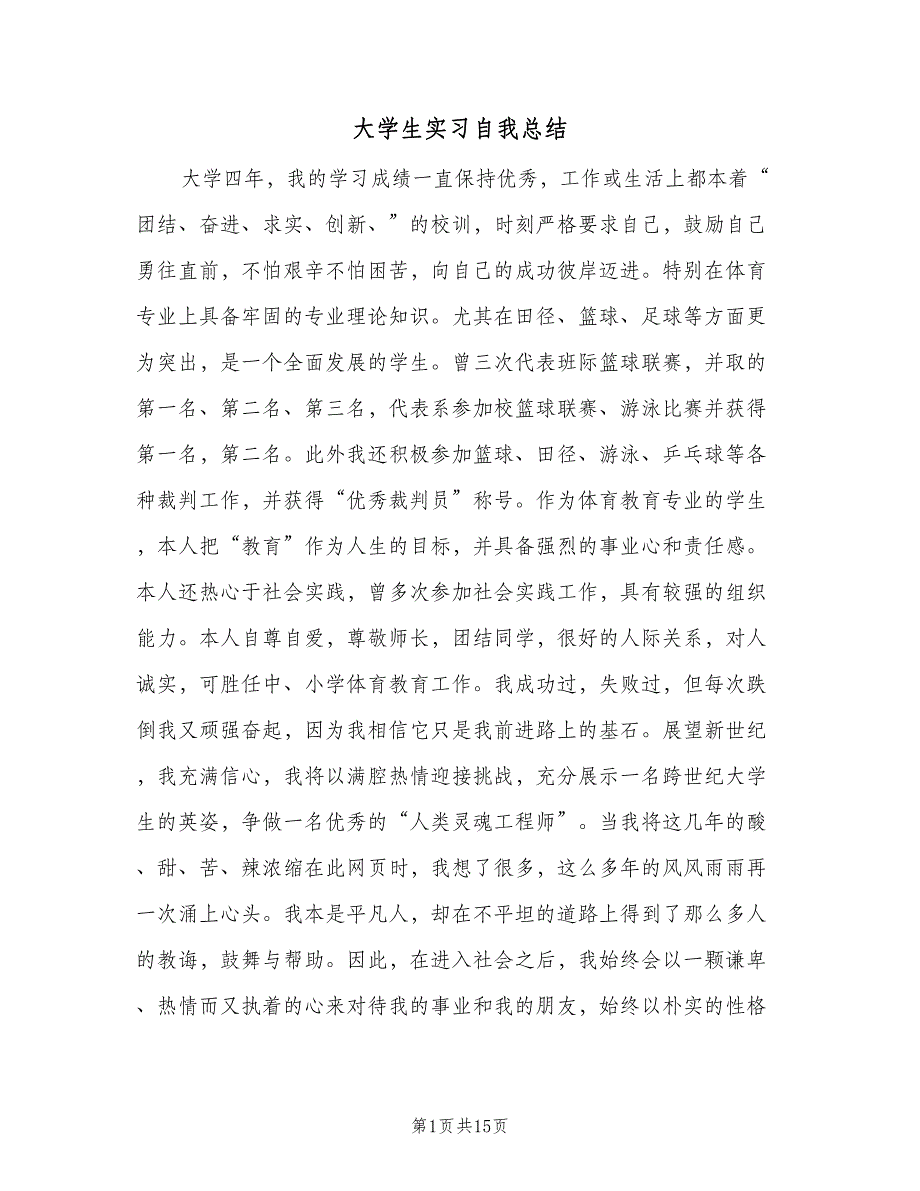 大学生实习自我总结
大学四年，我的学习成绩一直保持优秀，工作或生活上都本着“
团结、奋进、求实、创新、”的校训，时刻严格要求自己，鼓励自己
勇往直前，不怕艰辛不怕困苦，向自己的成功彼岸迈进。特别在体育
专业上具备牢固的专业理论知识。尤其在田径、篮球、足球等方面更
为突出，是一个全面发展的学生。曾三次代表班际篮球联赛，并取的
第一名、第二名、第三名，代表系参加校篮球联赛、游泳比赛并获得
第一名，第二名。此外我还积极参加篮球、田径、游泳、乒乓球等各
种裁判工作，并获得“优秀裁判员”称号。作为体育教育专业的学生
，本人把“教育”作为人生的目标，并具备强烈的事业心和责任感。
本人还热心于社会实践，曾多次参加社会实践工作，具有较强的组织
能力。本人自尊自爱，尊敬师长，团结同学，很好的人际关系，对人
诚实，可胜任中、小学体育教育工作。我成功过，失败过，但每次跌
倒我又顽强奋起，因为我相信它只是我前进路上的基石。展望新世纪
，我充满信心，我将以满腔热情迎接挑战，充分展示一名跨世纪大学
生的英姿，争做一名优秀的“人类灵魂工程师”。当我将这几年的酸
、甜、苦、辣浓缩在此网页时，我想了很多，这么多年的风风雨雨再
一次涌上心头。我本是平凡人，却在不平坦的道路上得到了那么多人
的教诲，鼓舞与帮助。因此，在进入社会之后，我始终会以一颗谦卑
、热情而又执着的心来对待我的事业和我的朋友，始终以朴实的性格
第1页共15页